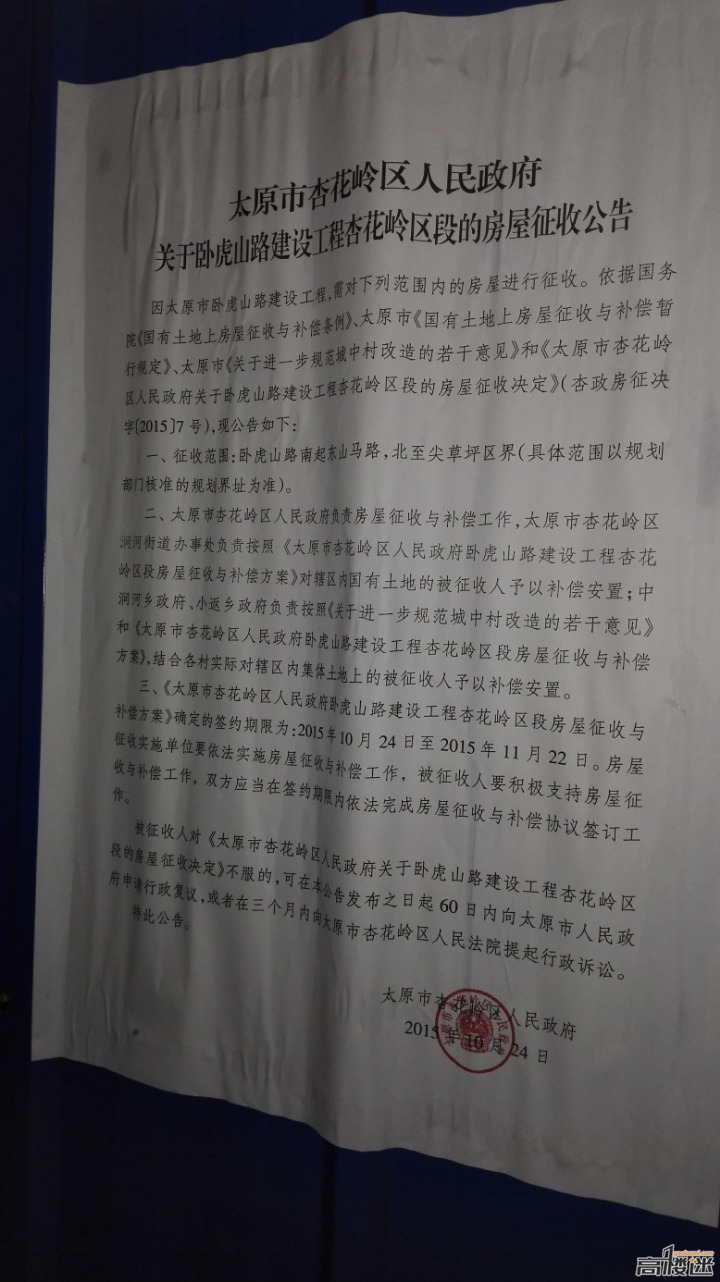 太原市杏花岭区人民政府
关于卧虎山路建设工程杏花岭区段的房屋征收公告
因太原市卧虎山路建设工程,需对下列范围内的房屋进行征收。依据国务
院《国有土地上房屋征收与补偿条例》、太原市《国有土地上房屋征收与补偿暂
行规定》、太原市《关于进一步规范城中村改造的若干意见》和《太原市杏花岭
区人民政府关于卧虎山路建设工程杏花岭区段的房屋征收决定》(杏政房征决
字[2015]7号),现公告如下:
一、征收范围:卧虎山路南起东山马路,北至尖草坪区界(具体范围以规划
部门核准的规划界址为准)。
二、太原市杏花岭区人民政府负责房屋征收与补偿工作,太原市杏花岭区
涧河街道办事处负责按照《太原市杏花岭区人民政府卧虎山路建设工程杏花
岭区段房屋征收与补偿方案》对辖区内国有土地的被征收人予以补偿安置;中
涧河乡政府、小返乡政府负责按照《关于进一步规范城中村改造的若干意见》
和《太原市杏花岭区人民政府卧虎山路建设工程杏花岭区段房屋征收与补偿
方案》,结合各村实际对辖区内集体土地上的被征收人予以补偿安置。
三、《太原市杏花岭区人民政府卧虎山路建设工程杏花岭区段房屋征收与
补偿方案》确定的签约期限为:2015年10月24日至2015年11月22日。房屋
征收实施单位要依法实施房屋征收与补偿工作,被征收人要积极支持房屋征
收与补偿工作,双方应当在签约期限内依法完成房屋征收与补偿协议签订工
作。
被征收人对《太原市杏花岭区人民政府关于卧虎山路建设工程杏花岭区
段的房屋征收决定》不服的,可在本公告发布之日起60日内向太原市人民政
府申请行政复议,或者在三个月内向太原市杏花岭区人民法院提起行政诉讼。
特此公告。
太原市杏花岭区人民政府
2015年10月24日
高楼迷